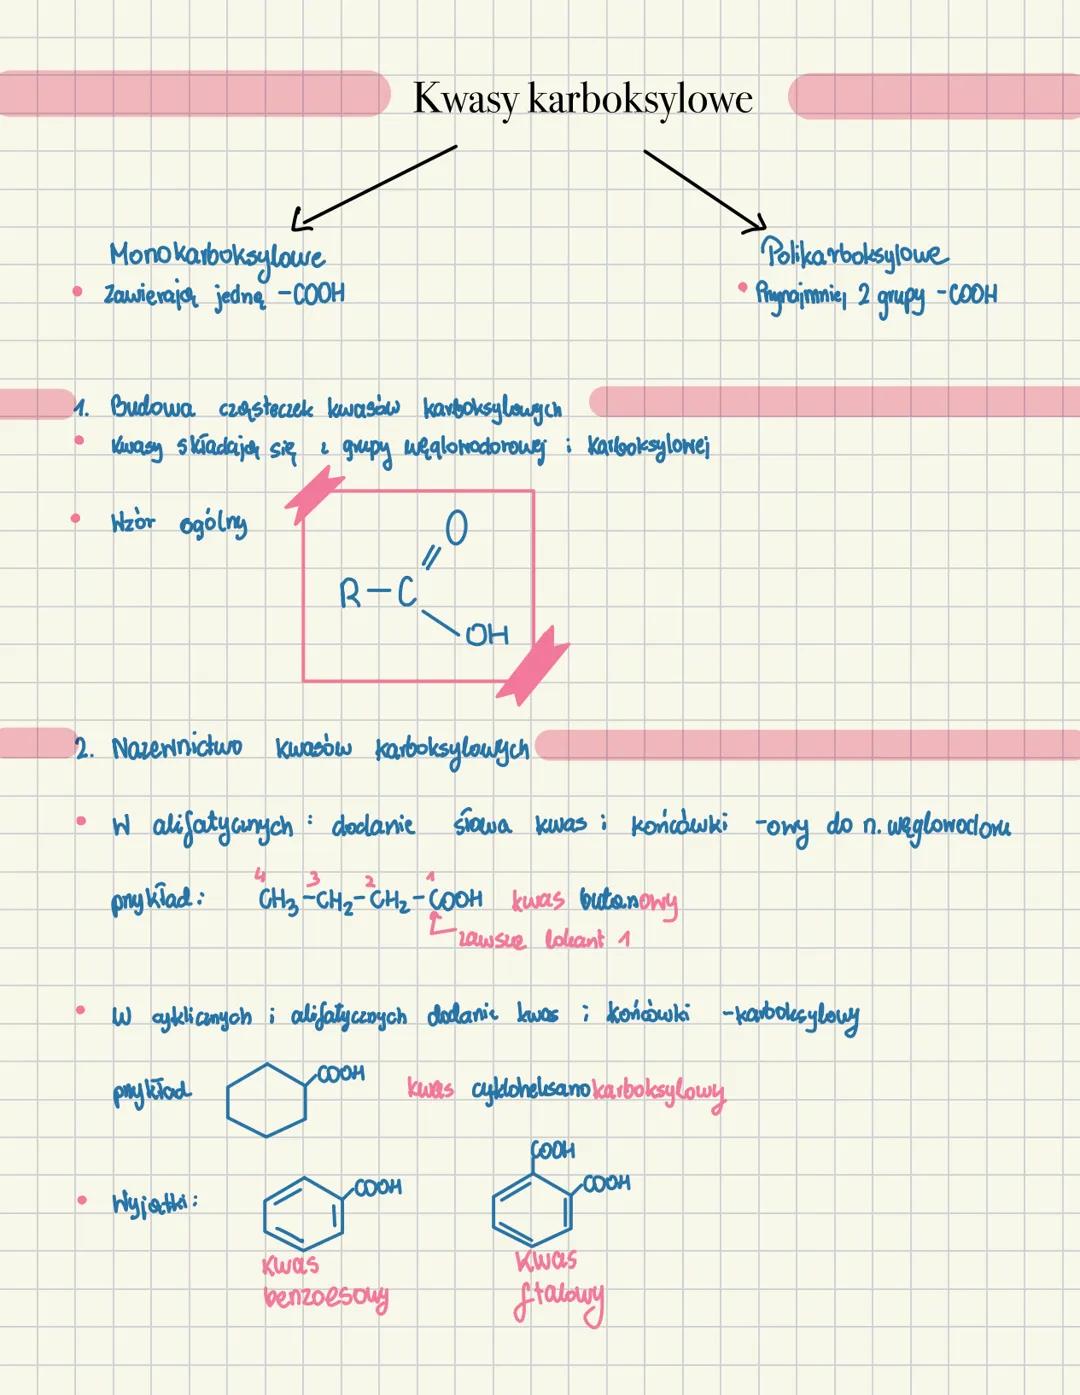 Kwasy karboksylowe
Monokarboksylowe
• Zawierają jedną -COOH
Polikarboksylowe
• Przynajmniej 2 grupy -COOH
1. Budowa cząsteczek kwasów karboksylowych
• Kwasy składają się z grupy węglowodorowej i karboksylowej
• Wzór ogólny
O
R-C
OH
2. Nazewnictwo kwasów karboksylowych
• W alifatycznych: dodanie słowa kwas i końcówki -owy do n. węglowodoru
przykład:
4 3 2 1
CH₃-CH₂-CH₂-COOH kwas butanowy
zawsze lokant 1
• W cyklicznych i alifatycznych dodanie kwas i końcówki -karboksylowy
przykład COOH kwas cykloheksanokarboksylowy
• Wyjątki:
COOH
COOH
COOH
kwas
benzoesowy
kwas
ftalowy